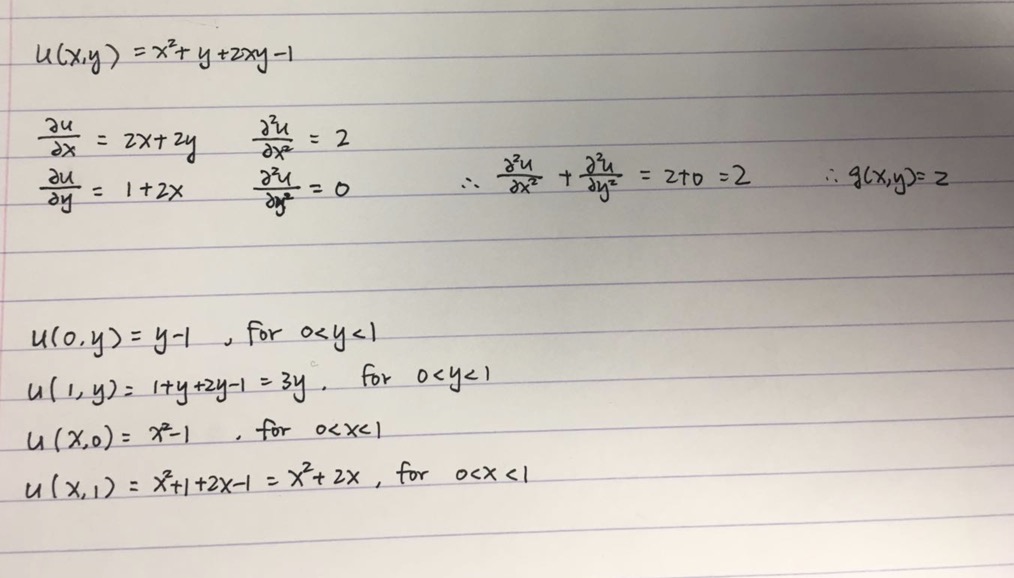 u(x,y) = x²+ y +2xy-1
∂u/∂x = 2x+2y   ∂²u/∂x² = 2
∂u/∂y = 1+2x   ∂²u/∂y² = 0   ∴ ∂²u/∂x² + ∂²u/∂y² = 2+0 = 2   ∴ g(x,y)= 2
u(0,y) = y-1 , for 0<y<1
u(1,y) = 1+y+2y-1 = 3y , for 0<y<1
u(x,0) = x²-1 , for 0<x<1
u(x,1) = x²+1+2x-1 = x²+2x , for 0<x<1